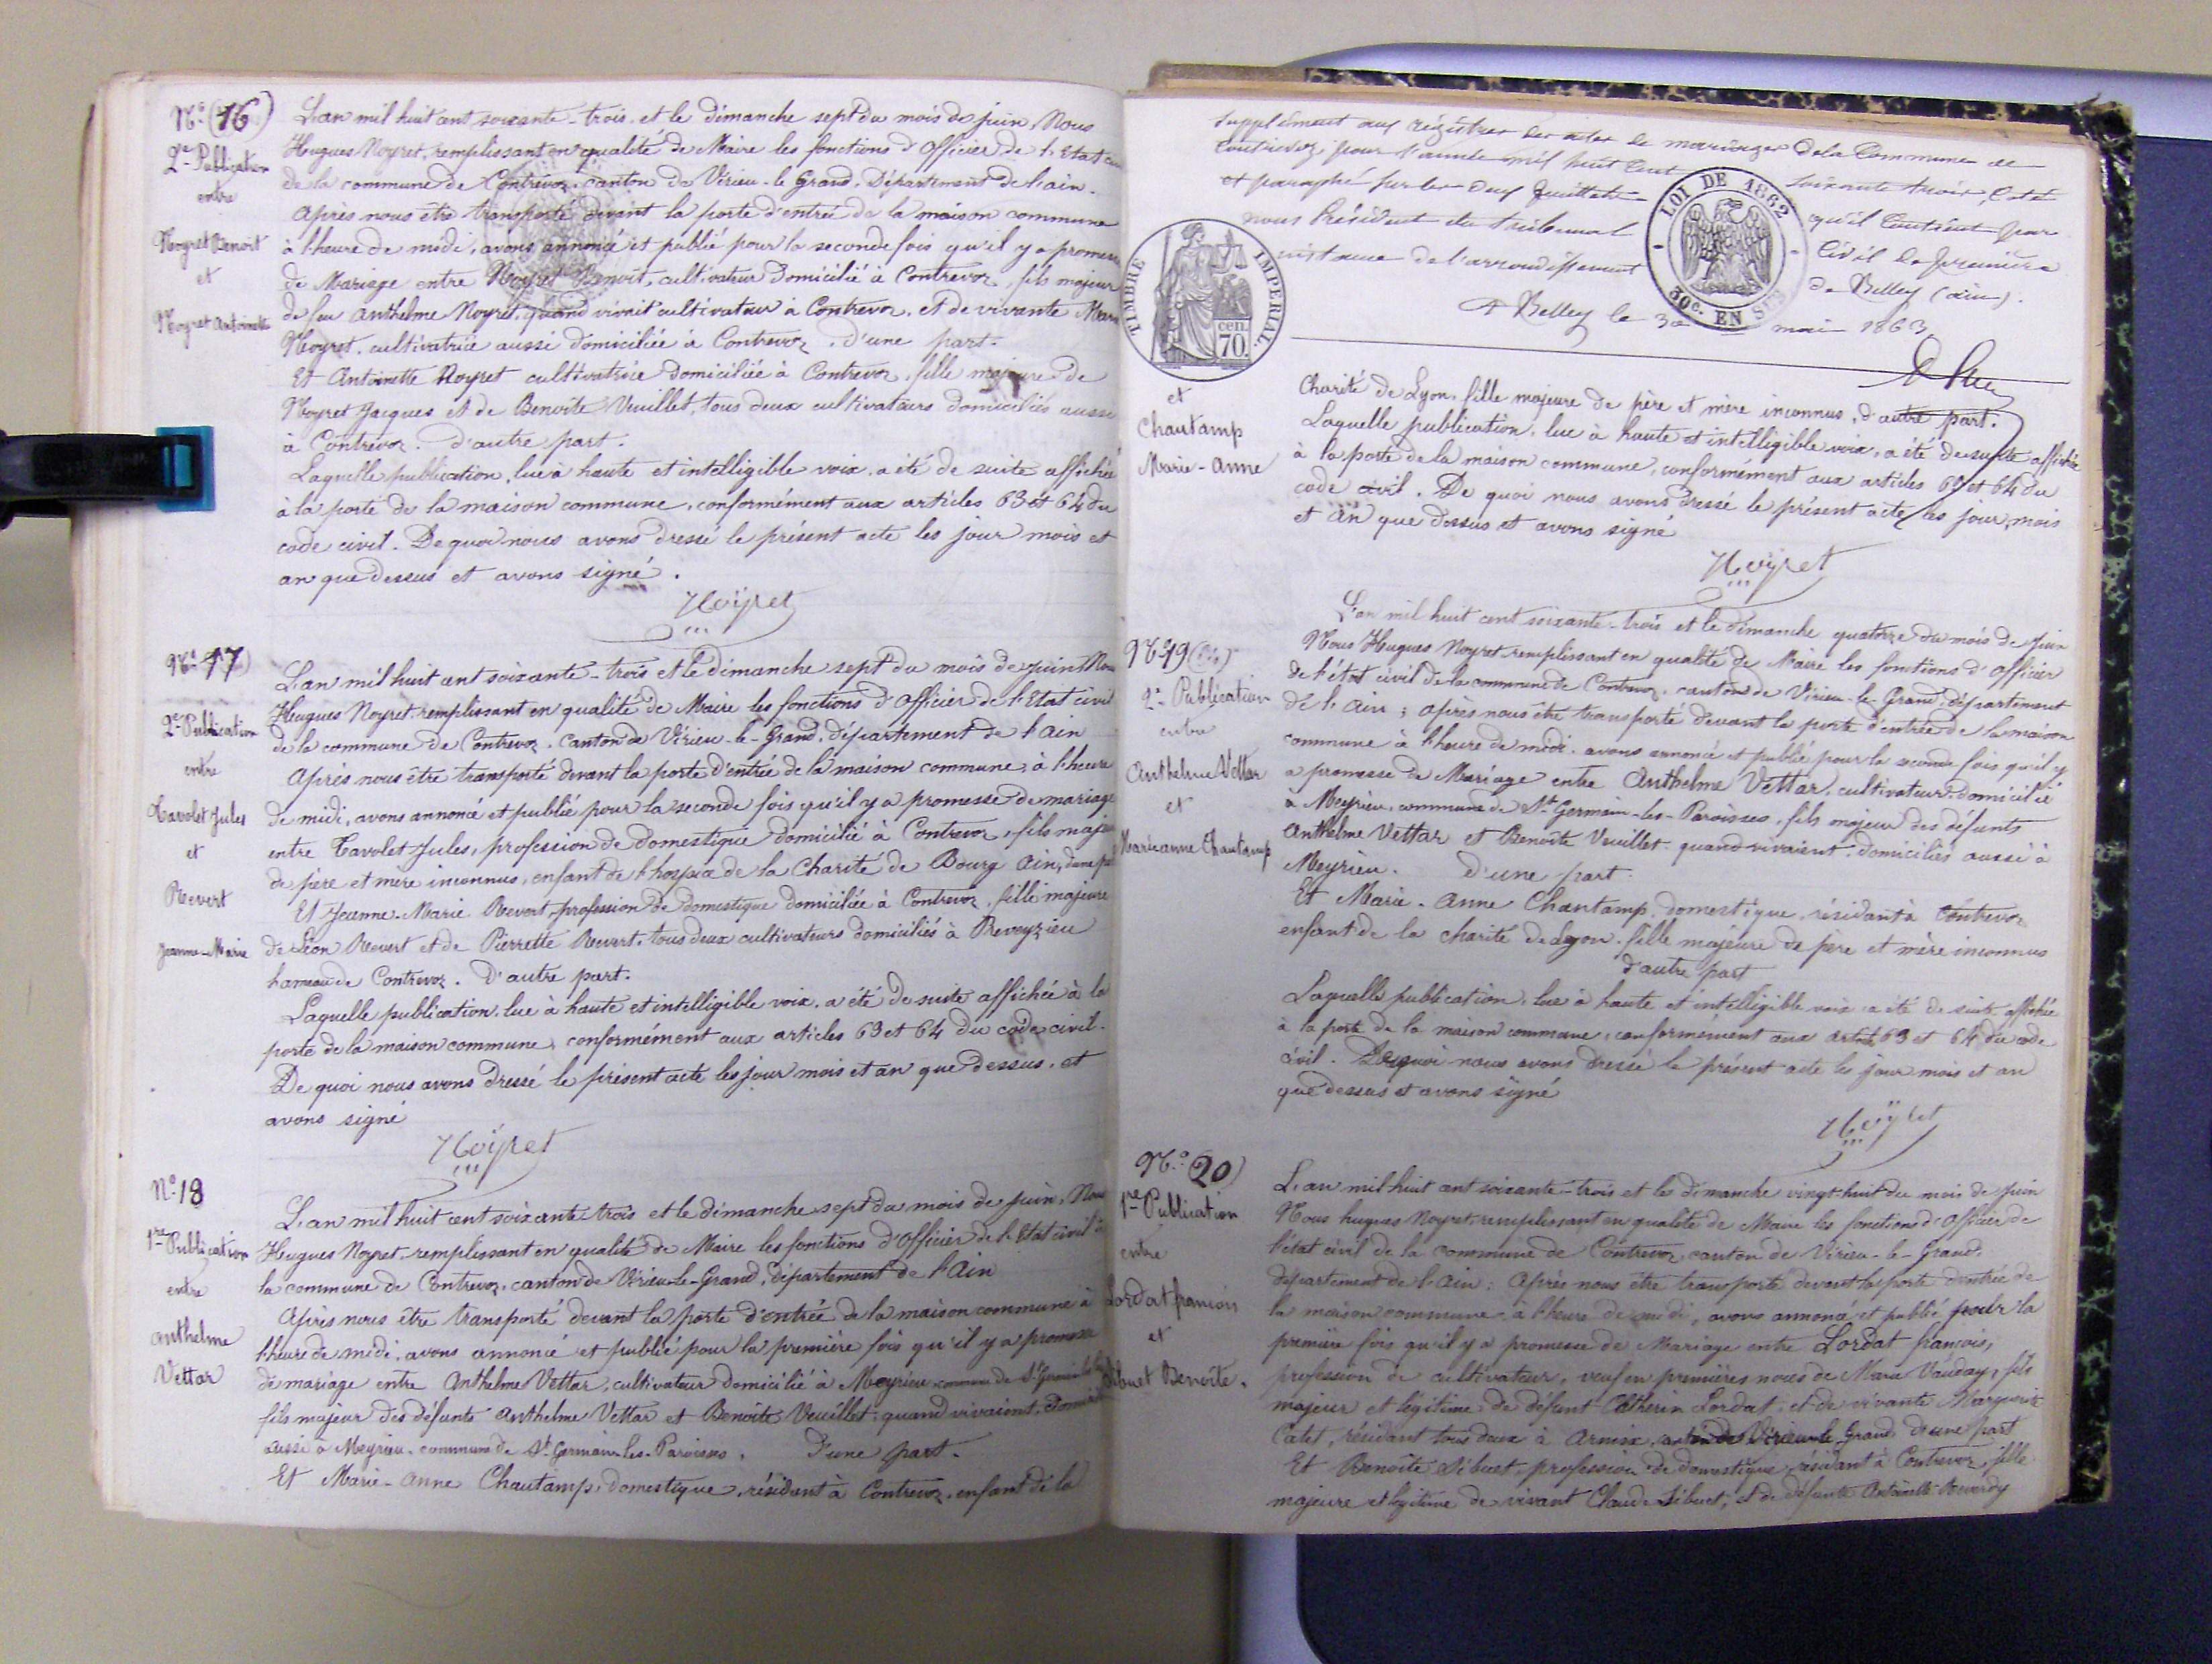 N° (16)
2e Publication
entre
Noyret Benoit
et
Noyret Antoinette
L'an mil huit cent soixante-trois et le dimanche sept du mois de juin, Nous
Hugues Noyret, remplissant en qualité de Maire les fonctions d'Officier de l'Etat
de la commune de Contrevoz, canton de Virieu-le-Grand, Département de l'ain.
Après nous être transporté devant la porte d'entrée de la maison commune
à l'heure de midi, avons annoncé et publié pour la seconde fois qu'il y a promesse
de Mariage entre Noyret Benoit, cultivateur domicilié à Contrevoz, fils majeur
de feu Anthelme Noyret, quand vivait cultivateur à Contrevoz, et de vivante
Noyret, cultivatrice aussi domiciliée à Contrevoz, d'une part.
Et Antoinette Noyret cultivatrice domiciliée à Contrevoz, fille majeure de
Noyret Jacques et de Benoîte Vuillet, tous deux cultivateurs domiciliés aussi
à Contrevoz. d'autre part.
Laquelle publication, lue à haute et intelligible voix, a été de suite affichée
à la porte de la maison commune, conformément aux articles 63 et 64 du
code civil. De quoi nous avons dressé le présent acte les jour mois et
an que dessus et avons signé.
Noyret
N° 17
2e Publication
entre
Tavolet Jules
et
Revert
Jeanne-Marie
L'an mil huit cent soixante-trois et le dimanche sept du mois de juin Nous
Hugues Noyret remplissant en qualité de Maire les fonctions d'Officier de l'Etat civil
de la commune de Contrevoz, canton de Virieu-le-Grand, département de l'ain
Après nous être transporté devant la porte d'entrée de la maison commune, à l'heure
de midi, avons annoncé et publié pour la seconde fois qu'il y a promesse de mariage
entre Tavolet Jules, profession de domestique domicilié à Contrevoz, fils majeur
de père et mère inconnus, enfant de l'hospice de la Charité de Bourg Ain, d'une
Et Jeanne-Marie Revert, profession de domestique domiciliée à Contrevoz, fille majeure
de Léon Revert et de Pierrette Revert, tous deux cultivateurs domiciliés à Preveyzieu
hameau de Contrevoz. D'autre part.
Laquelle publication, lue à haute et intelligible voix, a été de suite affichée à la
porte de la maison commune, conformément aux articles 63 et 64 du code civil.
De quoi nous avons dressé le présent acte les jour mois et an que dessus, et
avons signé
Noyret
N° 18
1re Publication
entre
Anthelme
Vettar
L'an mil huit cent soixante-trois et le dimanche sept du mois de juin, Nous
Hugues Noyret remplissant en qualité de Maire les fonctions d'Officier de l'Etat civil de
la commune de Contrevoz, canton de Virieu-le-Grand, département de l'Ain
Après nous être transporté devant la porte d'entrée de la maison commune à
l'heure de midi, avons annoncé et publié pour la première fois qu'il y a promesse
de mariage entre Anthelme Vettar, cultivateur domicilié à Meyrieu commune de St Germain
fils majeur des défunts Anthelme Vettar et Benoîte Vuillet, quand vivaient,
aussi à Meyrieu commune de St Germain-les-Paroisses, D'une part.
Et Marie-Anne Chautamp, domestique, résidant à Contrevoz, enfant de la
Supplément aux régistres des actes de mariages de la Commune de
Contrevoz, pour l'année mil huit cent soixante trois, Coté
et paraphé sur les deux feuillets qu'il contient par
nous Président du tribunal Civil de première
instance de l'arrondissement de Belley (ain).
A Belley le 30 mai 1863
TIMBRE IMPERIAL.
cen.
70
LOI DE 1862
30c. EN SUS
et
Chautamp
Marie-Anne
Charité de Lyon, fille majeure de père et mère inconnus, d'autre part.
Laquelle publication, lue à haute et intelligible voix, a été de suite affichée
à la porte de la maison commune, conformément aux articles 63 et 64 du
code civil. De quoi nous avons dressé le présent acte les jour, mois
et an que dessus et avons signé
Noyret
N° 19
2e Publication
entre
Anthelme Vettar
et
Marie anne Chautamp
L'an mil huit cent soixante-trois et le dimanche quatorze du mois de juin
Nous Hugues Noyret remplissant en qualité de Maire les fonctions d'Officier
de l'état civil de la commune de Contrevoz, canton de Virieu-le-Grand, département
de l'Ain; après nous être transporté devant la porte d'entrée de la maison
commune à l'heure de midi, avons annoncé et publié pour la seconde fois qu'il y
a promesse de Mariage entre Anthelme Vettar, cultivateur, domicilié
à Meyrieu, commune de St Germain-les-Paroisses, fils majeur des défunts
Anthelme Vettar et Benoîte Vuillet quand vivaient domiciliés aussi à
Meyrieu. D'une part.
Et Marie-Anne Chautamp, domestique, résidant à Contrevoz
enfant de la charité de Lyon, fille majeure de père et mère inconnus
d'autre part
Laquelle publication, lue à haute et intelligible voix a été de suite affichée
à la porte de la maison commune, conformément aux articles 63 et 64 du code
civil. De quoi nous avons dressé le présent acte les jour mois et an
que dessus et avons signé
Noyret
N° (20)
1re Publication
entre
Lordat francois
et
Sibuet Benoîte.
L'an mil huit cent soixante-trois et le dimanche vingt-huit du mois de juin
Nous hugues Noyret, remplissant en qualité de Maire les fonctions d'Officier de
l'état civil de la commune de Contrevoz, canton de Virieu-le-Grand,
département de l'ain; Après nous être transporté devant la porte d'entrée de
la maison commune, à l'heure de midi, avons annoncé et publié pour la
première fois qu'il y a promesse de Mariage entre Lordat francois,
profession de cultivateur, veuf en premières noces de Marie Vauday, fils
majeur et légitime de défunt Cathérin Lordat, et de vivante Marguerite
Catet, résidant tous deux à Arnix, canton de Virieu-le-Grand d'une part
Et Benoîte Sibuet, profession de domestique, résidant à Contrevoz, fille
majeure et légitime de vivant Claude Sibuet, et de défunte Antoinette